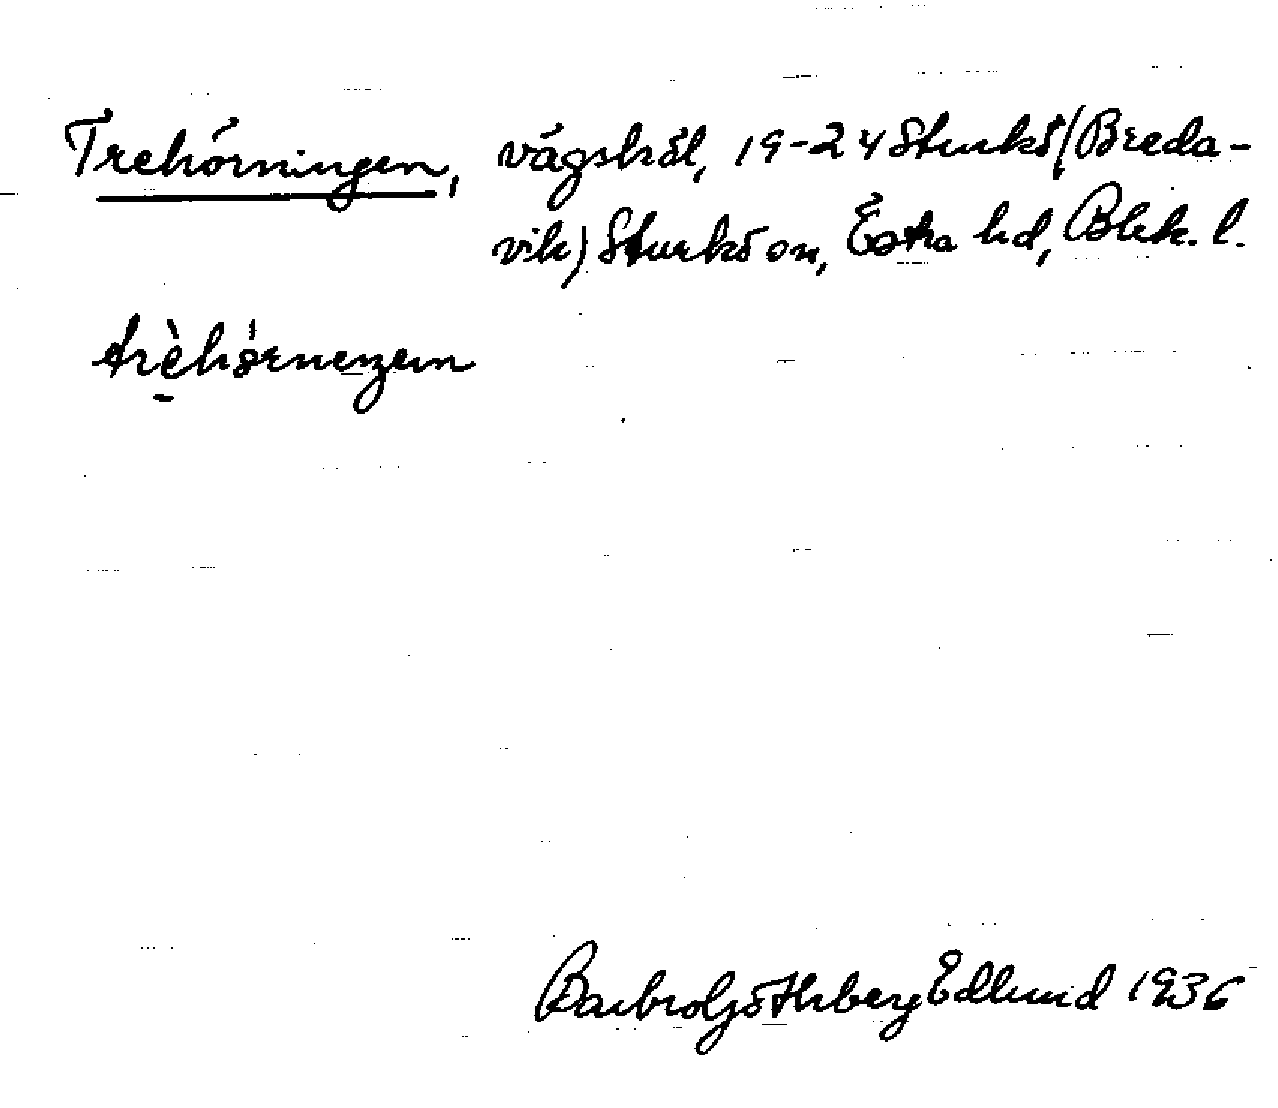 Trehörningen, vägskäl, 19-24 Sturkö (Breda-
vik) Sturkö sn, Östra hd, Blek. l.
trèhö́rneŋen
Barbro Göthberg Edlund 1936